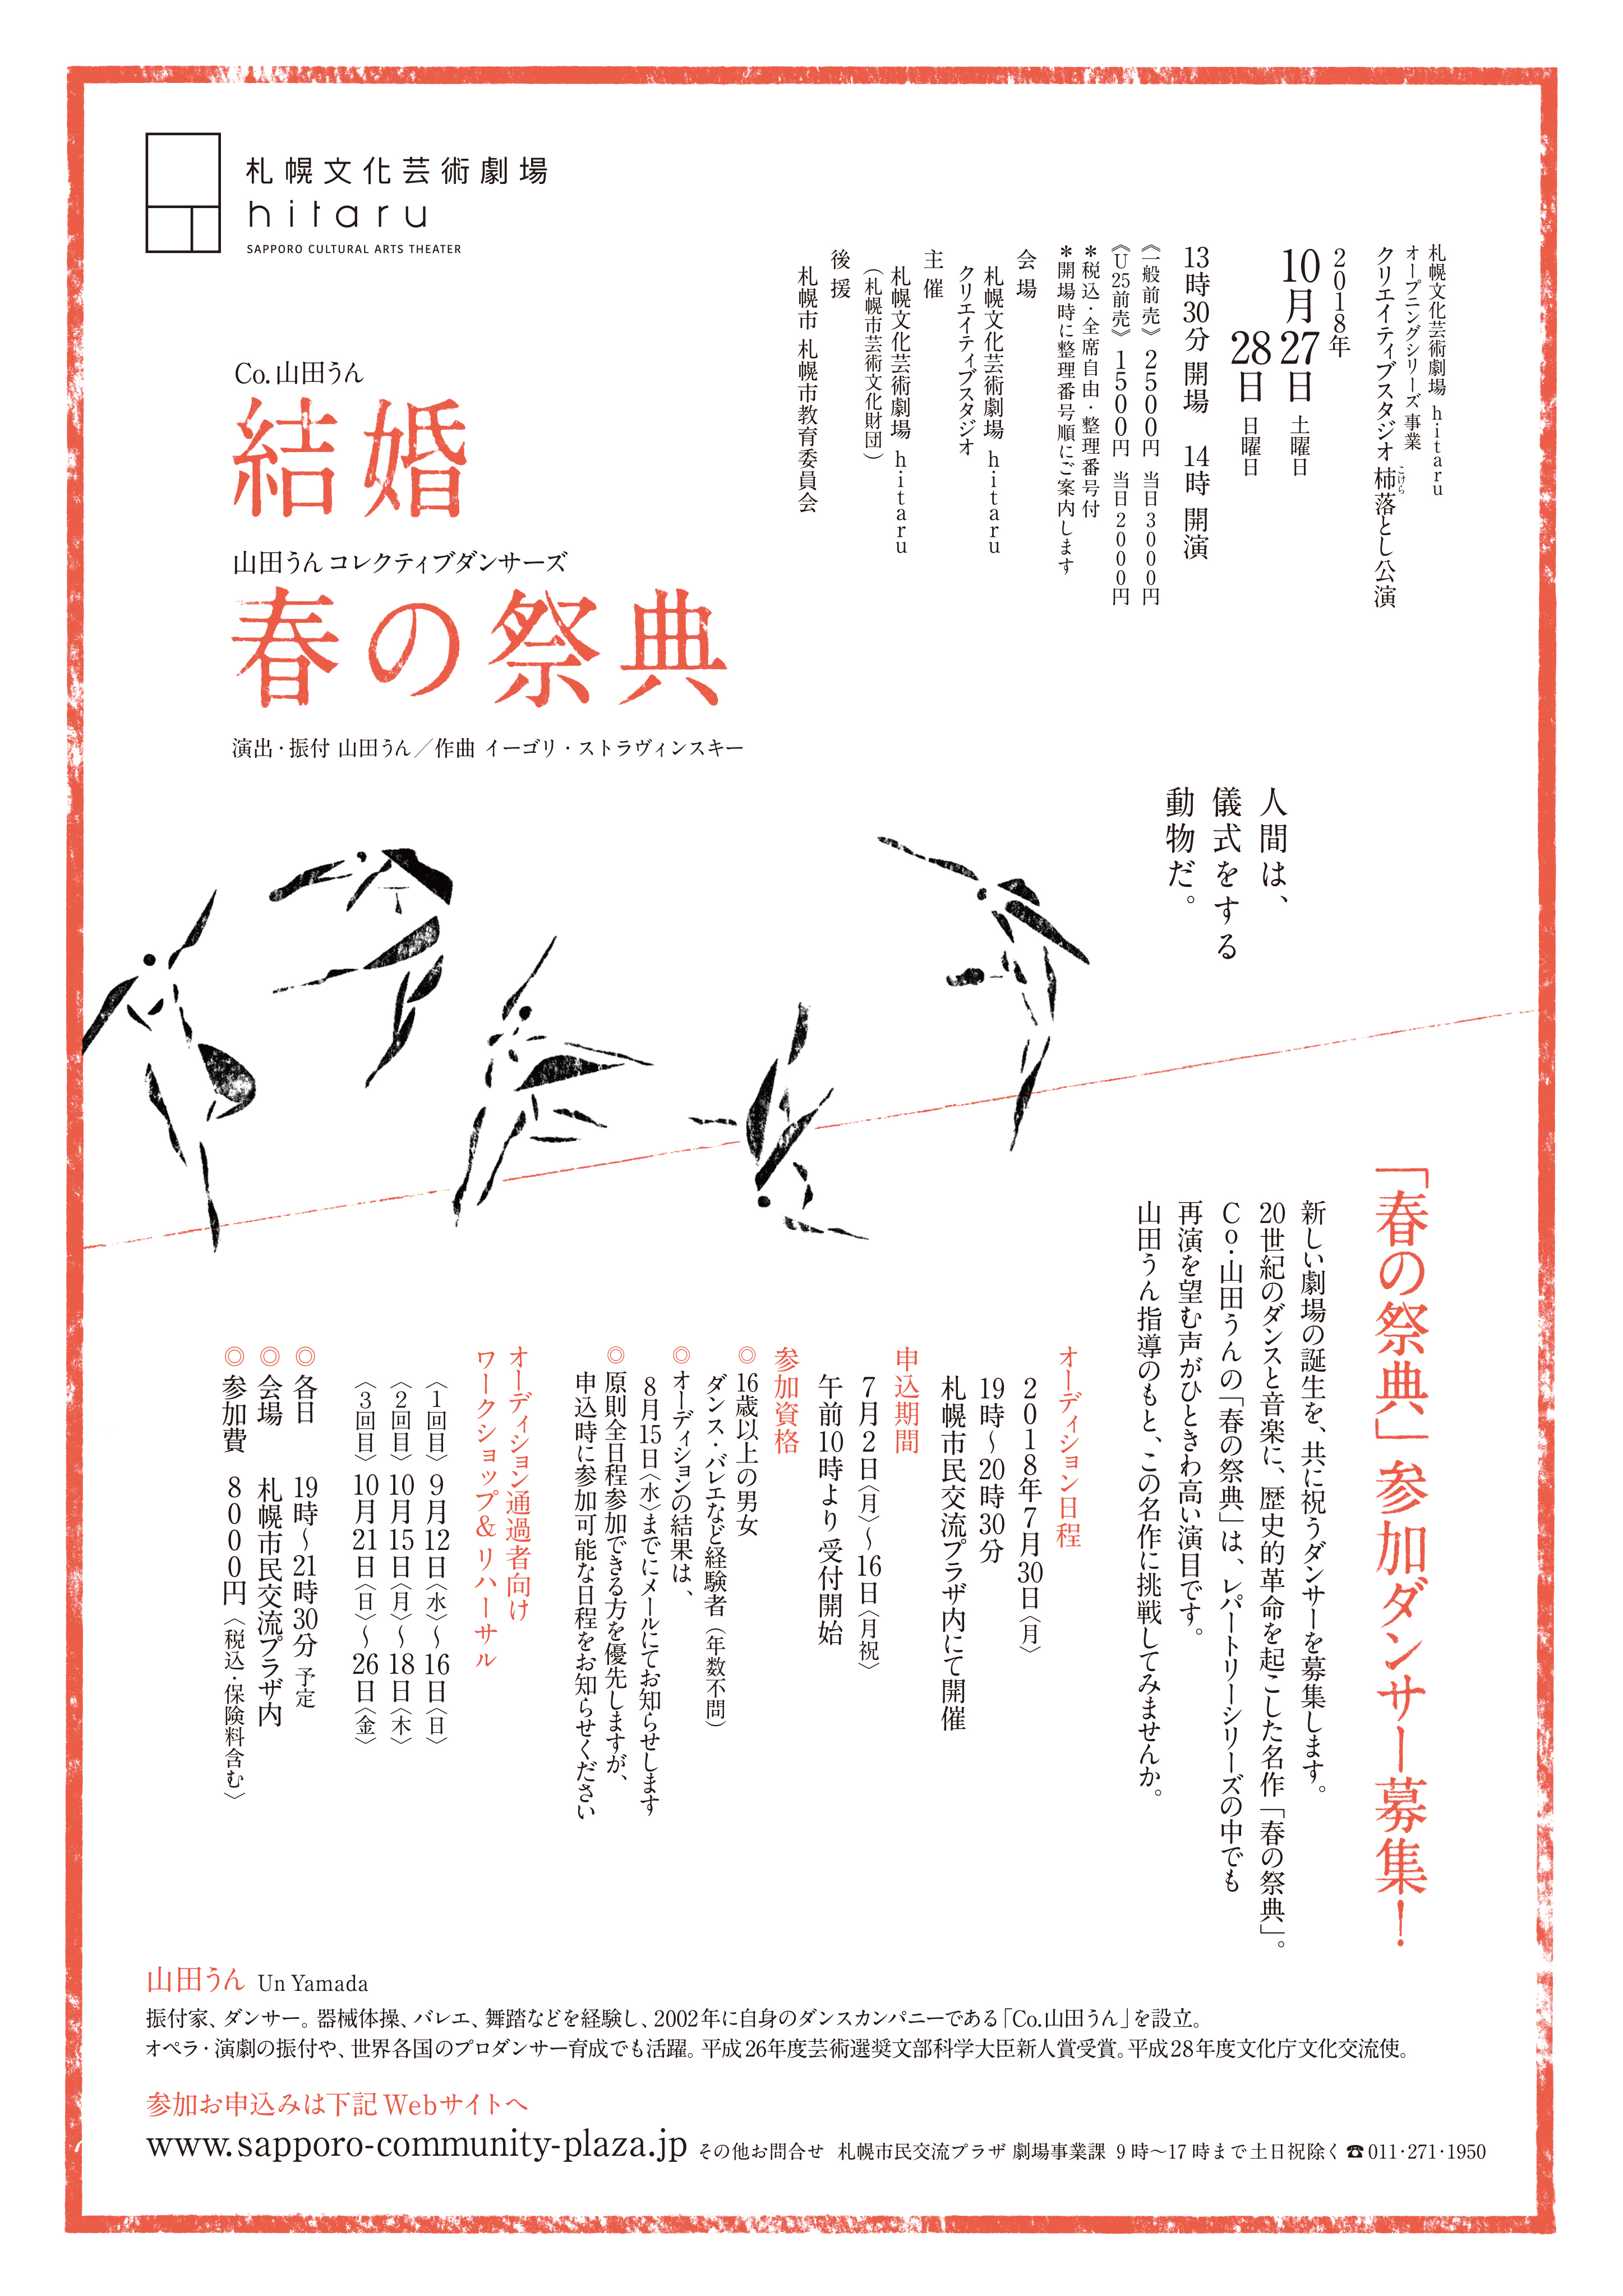 札幌文化芸術劇場
hitaru
SAPPORO CULTURAL ARTS THEATER
札幌文化芸術劇場 hitaru
オープニングシリーズ事業
クリエイティブスタジオ 杮落とし公演
こけら
2018年
10月27日 土曜日
28日 日曜日
13時30分 開場 14時 開演
《一般前売》 2500円 当日3000円
《U25前売》 1500円 当日2000円
*税込・全席自由・整理番号付
*開場時に整理番号順にご案内します
会場
札幌文化芸術劇場 hitaru
クリエイティブスタジオ
主催
札幌文化芸術劇場 hitaru
(札幌市芸術文化財団)
後援
札幌市 札幌市教育委員会
Co.山田うん
結婚
山田うん コレクティブダンサーズ
春の祭典
演出・振付 山田うん／作曲 イーゴリ・ストラヴィンスキー
人間は、
儀式をする
動物だ。
「春の祭典」参加ダンサー募集！
新しい劇場の誕生を、共に祝うダンサーを募集します。
20世紀のダンスと音楽に、歴史的革命を起こした名作「春の祭典」。
Co.山田うんの「春の祭典」は、レパートリーシリーズの中でも
再演を望む声がひときわ高い演目です。
山田うん指導のもと、この名作に挑戦してみませんか。
オーディション日程
2018年7月30日〈月〉
19時～20時30分
札幌市民交流プラザ内にて開催
申込期間
7月2日〈月〉～16日〈月祝〉
午前10時より 受付開始
参加資格
◎16歳以上の男女
ダンス・バレエなど経験者（年数不問）
◎オーディションの結果は、
8月15日〈水〉までにメールにてお知らせします
◎原則全日程参加できる方を優先しますが、
申込時に参加可能な日程をお知らせください
オーディション通過者向け
ワークショップ＆リハーサル
〈1回目〉9月12日〈水〉～16日〈日〉
〈2回目〉10月15日〈月〉～18日〈木〉
〈3回目〉10月21日〈日〉～26日〈金〉
◎各日 19時～21時30分 予定
◎会場 札幌市民交流プラザ内
◎参加費 8000円〈税込・保険料含む〉
山田うん Un Yamada
振付家、ダンサー。器械体操、バレエ、舞踏などを経験し、2002年に自身のダンスカンパニーである「Co.山田うん」を設立。
オペラ・演劇の振付や、世界各国のプロダンサー育成でも活躍。平成26年度芸術選奨文部科学大臣新人賞受賞。平成28年度文化庁文化交流使。
参加お申込みは下記Webサイトへ
www.sapporo-community-plaza.jp その他お問合せ 札幌市民交流プラザ 劇場事業課 9時～17時まで土日祝除く ☎011・271・1950